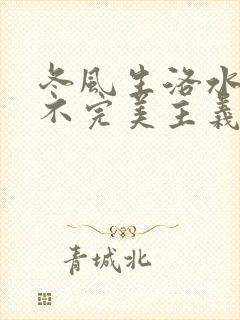 冬風生洛水
不完美主義
青城北